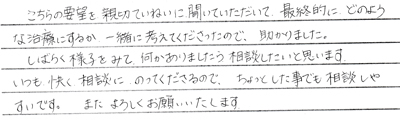 こちらの要望を親切ていねいに聞いていただいて、最終的に、どのよう
な治療にするか、一緒に考えてくださったので、助かりました。
しばらく様子をみて、何かありましたら相談したいと思います。
いつも快く相談に、のってくださるので、ちょっとした事でも相談しや
すいです。 またよろしくお願いいたします